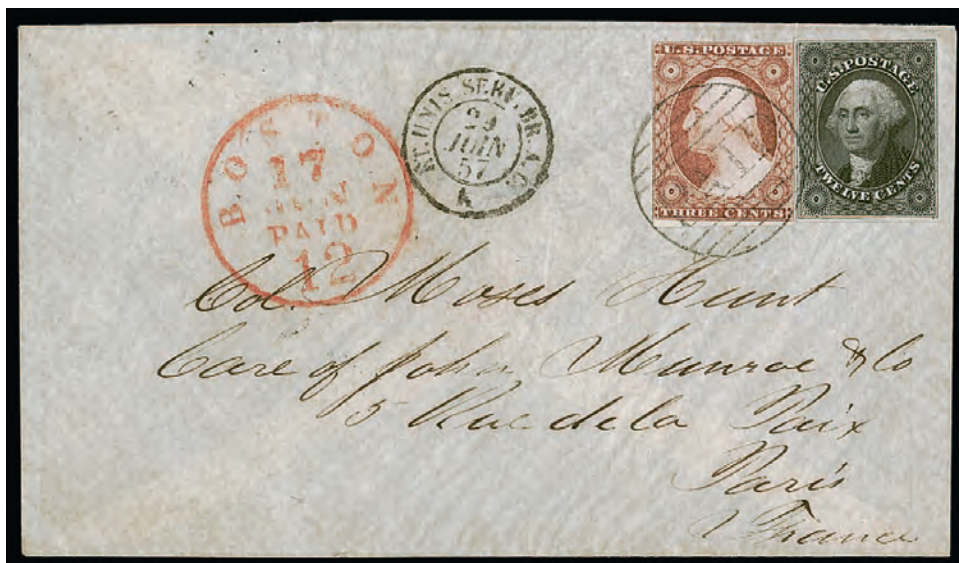 BOSTON
17
JUN
PAID
12
ET.UNIS SERV.BR.A.C.
29
JUIN
57
K
U.S. POSTAGE
THREE CENTS
PAID
U.S. POSTAGE
TWELVE CENTS
Col. Moses Hunt
Care of John Munroe & Co
5 Rue de la Paix
Paris
France